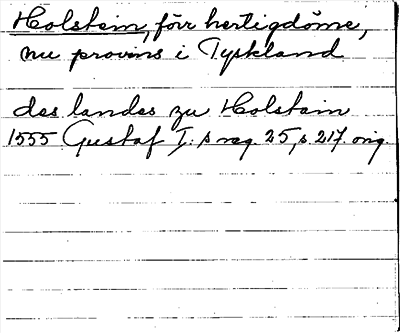 Holstein, förr hertigdöme,
nu provins i Tyskland
des landes zu Holstein
1555 Gustaf I:s reg. 25, s. 217. orig.